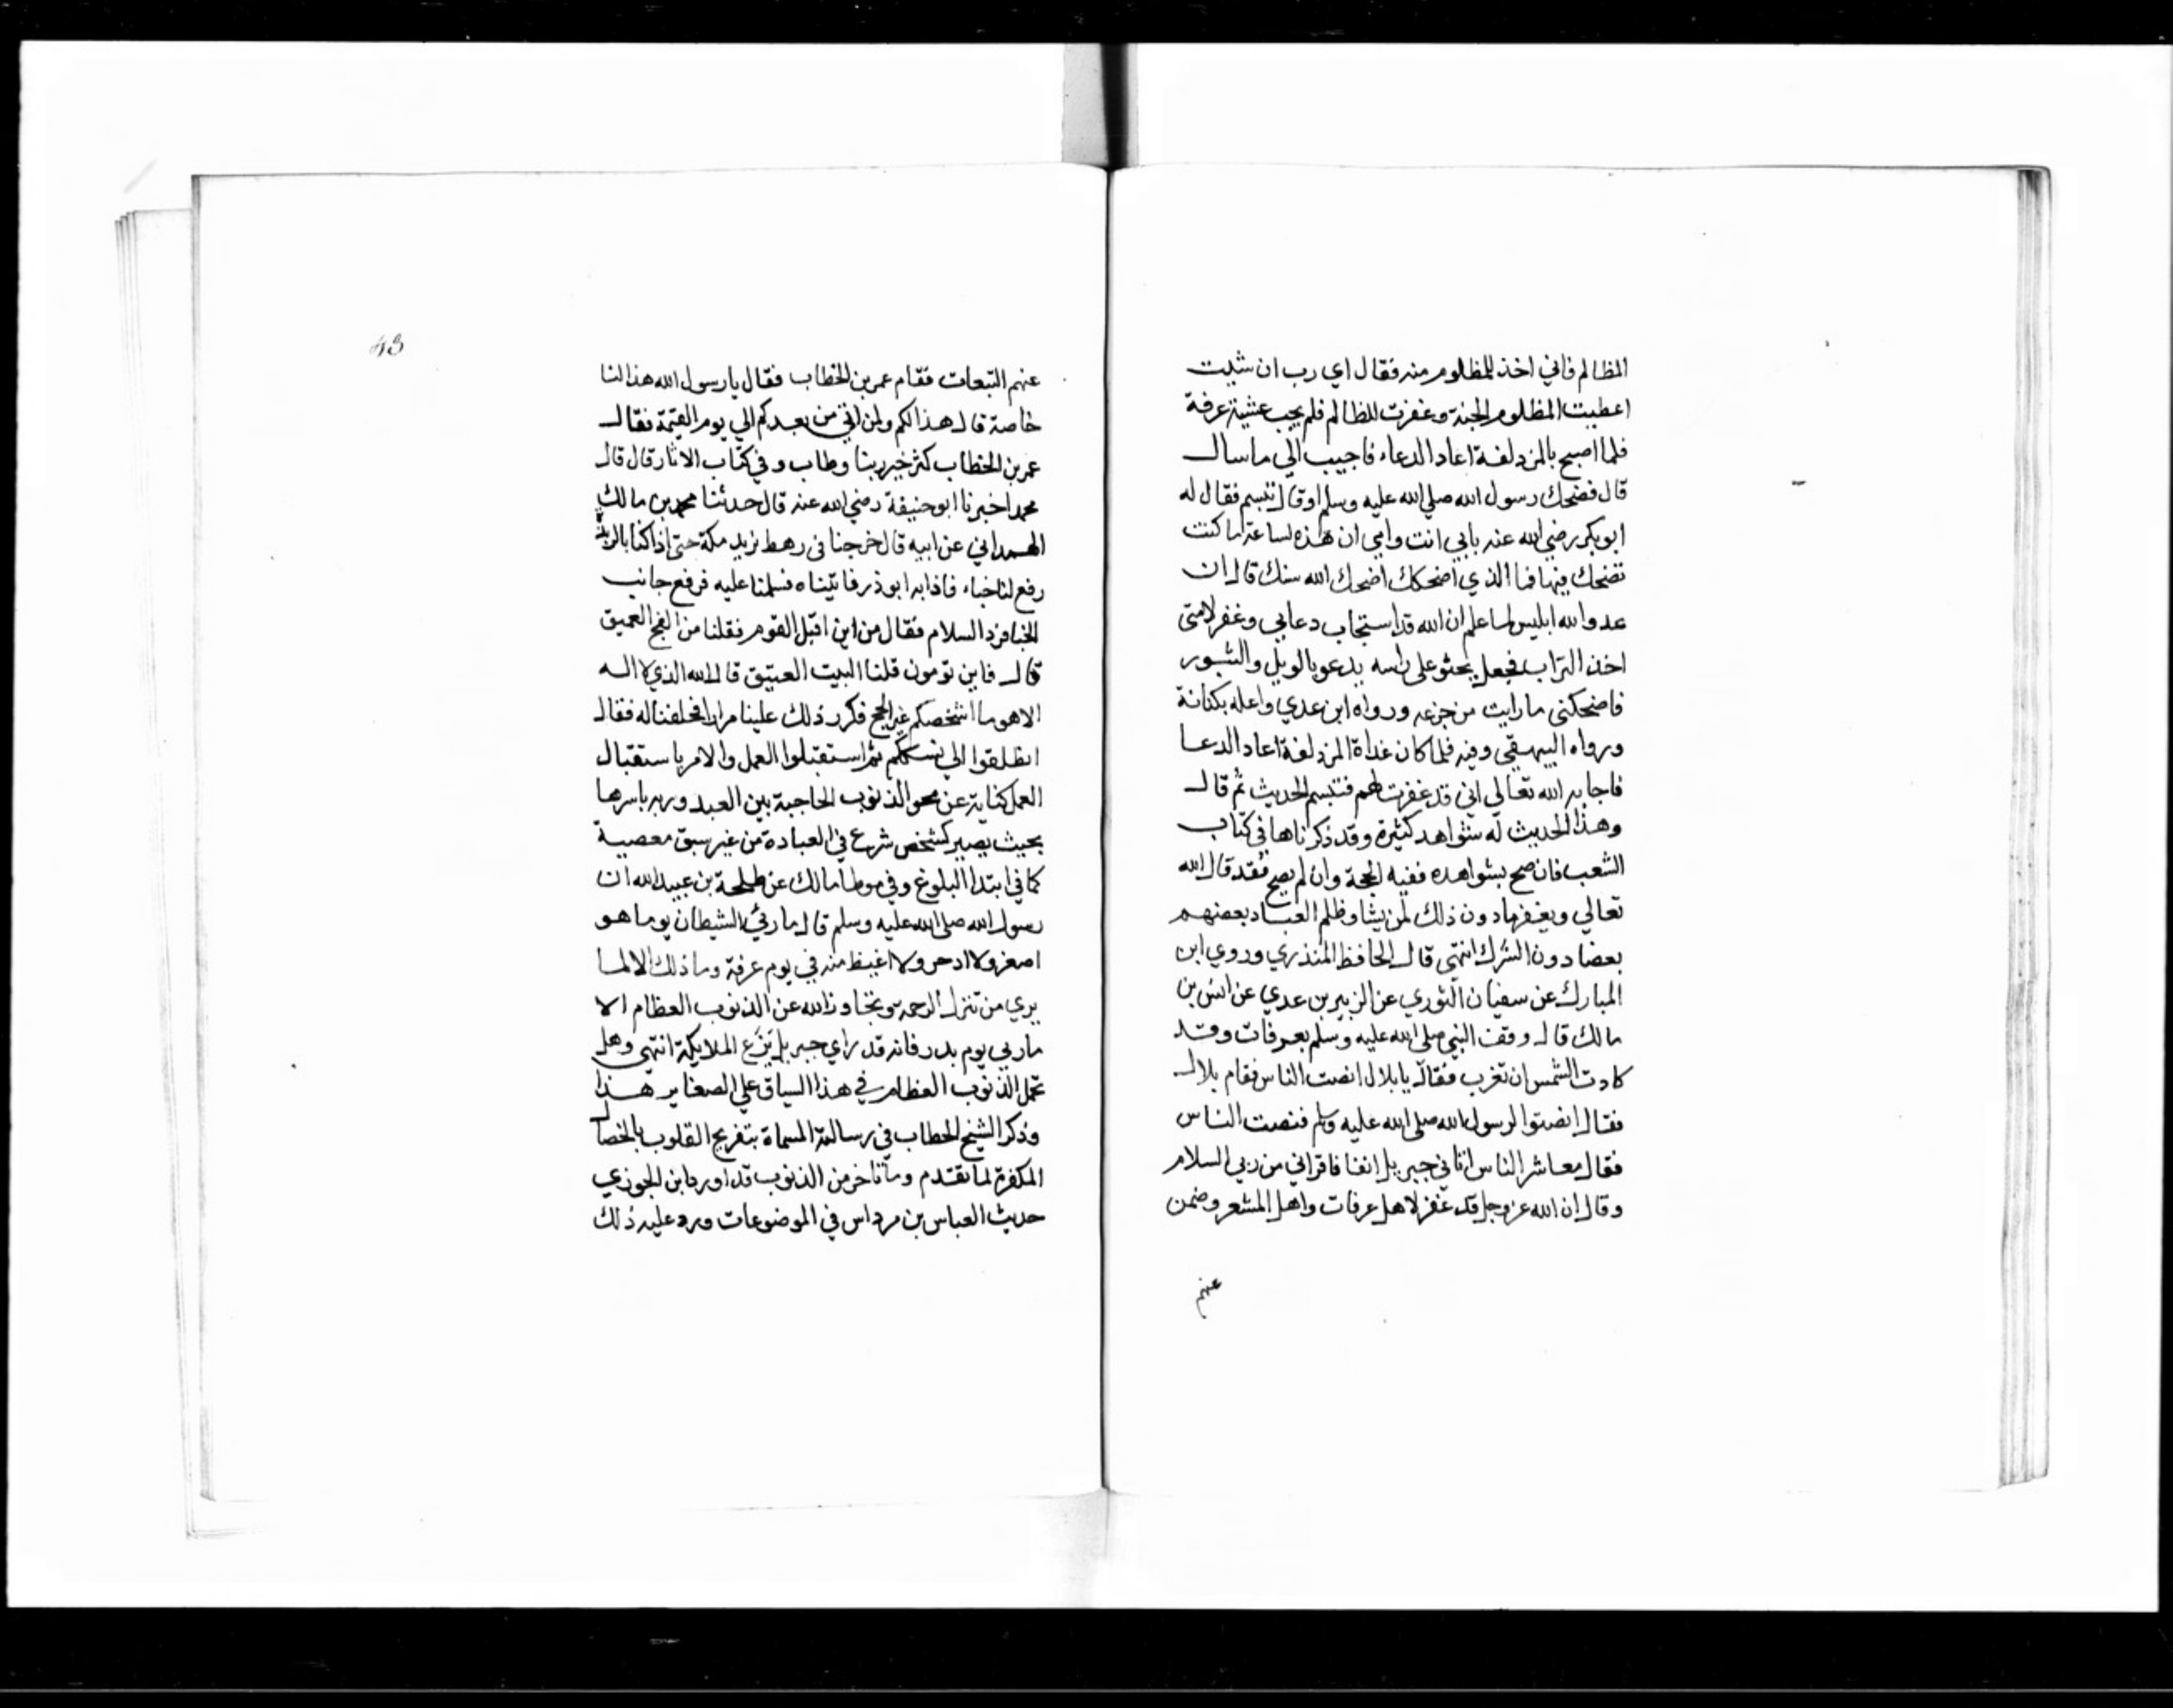 المظالم فاني اخذ للمظلوم منه فقال اي رب ان شيت
اعطيت المظلوم الجنة وغفرت للظالم فلم يجب عشية عرفة
فلما اصبح بالمزدلفة اعاد الدعاء فاجيب الي ما سال
قال فضحك رسول الله صلي الله عليه وسلم او قال تبسم فقال له
ابو بكر رضي الله عنه بابي انت وامي ان هذه لساعة ما كنت
تضحك فيها فما الذي اضحكك اضحك الله سنك قال ان
عدو الله ابليس لما علم ان الله قد استجاب دعايي وغفر لامتي
اخذ التراب فجعل يحثو علي راسه يدعو بالويل والثبور
فاضحكني ما رايت من جزعه ورواه ابن عدي واعله بكنانة
ورواه البيهقي وفيه فلما كان غداة المزدلفة اعاد الدعا
فاجابه الله تعالي اني قد غفرت لهم فتبسم الحديث ثم قال
وهذا الحديث له شواهد كثيرة وقد ذكرناها في كتاب
الشعب فان صح بشواهده ففيه الحجة وان لم يصح فقد قال الله
تعالي ويغفر ما دون ذلك لمن يشا وظلم العباد بعضهم
بعضا دون الشرك انتهي قال الحافظ المنذري وروي ابن
المبارك عن سفيان الثوري عن الزبير بن عدي عن انس بن
مالك قال وقف النبي صلي الله عليه وسلم بعرفات وقد
كادت الشمس ان تغرب فقال يا بلال انصت الناس فقام بلال
فقال انصتوا لرسول الله صلي الله عليه وسلم فنصت الناس
فقال معاشر الناس اتاني جبريل انفا فاقراني من ربي السلام
وقال ان الله عز وجل قد غفر لاهل عرفات واهل المشعر وضمن
عنهم
43
عنهم التبعات فقام عمر بن الخطاب فقال يا رسول الله هذا لنا
خاصة قال هذا لكم ولمن اتي من بعدكم الي يوم القيمة فقال
عمر بن الخطاب كثر خير ربنا وطاب وفي كتاب الاثار قال قال
محمد اخبرنا ابو حنيفة رضي الله عنه قال حدثنا محمد بن مالك
الهمداني عن ابيه قال خرجنا في رهط نريد مكة حتي اذا كنا بالربذة
رفع لنا خباء فاذا به ابو ذر فاتيناه فسلمنا عليه فرفع جانب
الخبا فرد السلام فقال من اين اقبل القوم فقلنا من الفج العميق
قال فاين تومون قلنا البيت العتيق قال الله الذي لا اله
الا هو ما اشخصكم غير الحج فكرر ذلك علينا مرارا فحلفنا له فقال
انطلقوا الي نسككم ثم استقبلوا العمل والامر باستقبال
العمل كناية عن محو الذنوب الحاجبة بين العبد وربه باسرها
بحيث يصير كشخص شرع في العبادة من غير سبق معصية
كما في ابتدا البلوغ وفي موطا مالك عن طلحة بن عبيد الله ان
رسول الله صلي الله عليه وسلم قال ما رئي الشيطان يوما هو
اصغر ولا ادحر ولا اغيظ منه في يوم عرفة وما ذلك الا لما
يري من تنزل الرحمة وتجاوز الله عن الذنوب العظام الا
ما ريي يوم بدر فانه قد راي جبريل يزع الملايكة انتهي وهل
تحمل الذنوب العظام في هذا السياق علي الصغاير هذا
وذكر الشيخ الحطاب في رسالته المسماة بتفريج القلوب بالخصال
المكفرة لما تقدم وما تاخر من الذنوب قد اورد ابن الجوزي
حديث العباس بن مرداس في الموضوعات ورد عليه ذلك